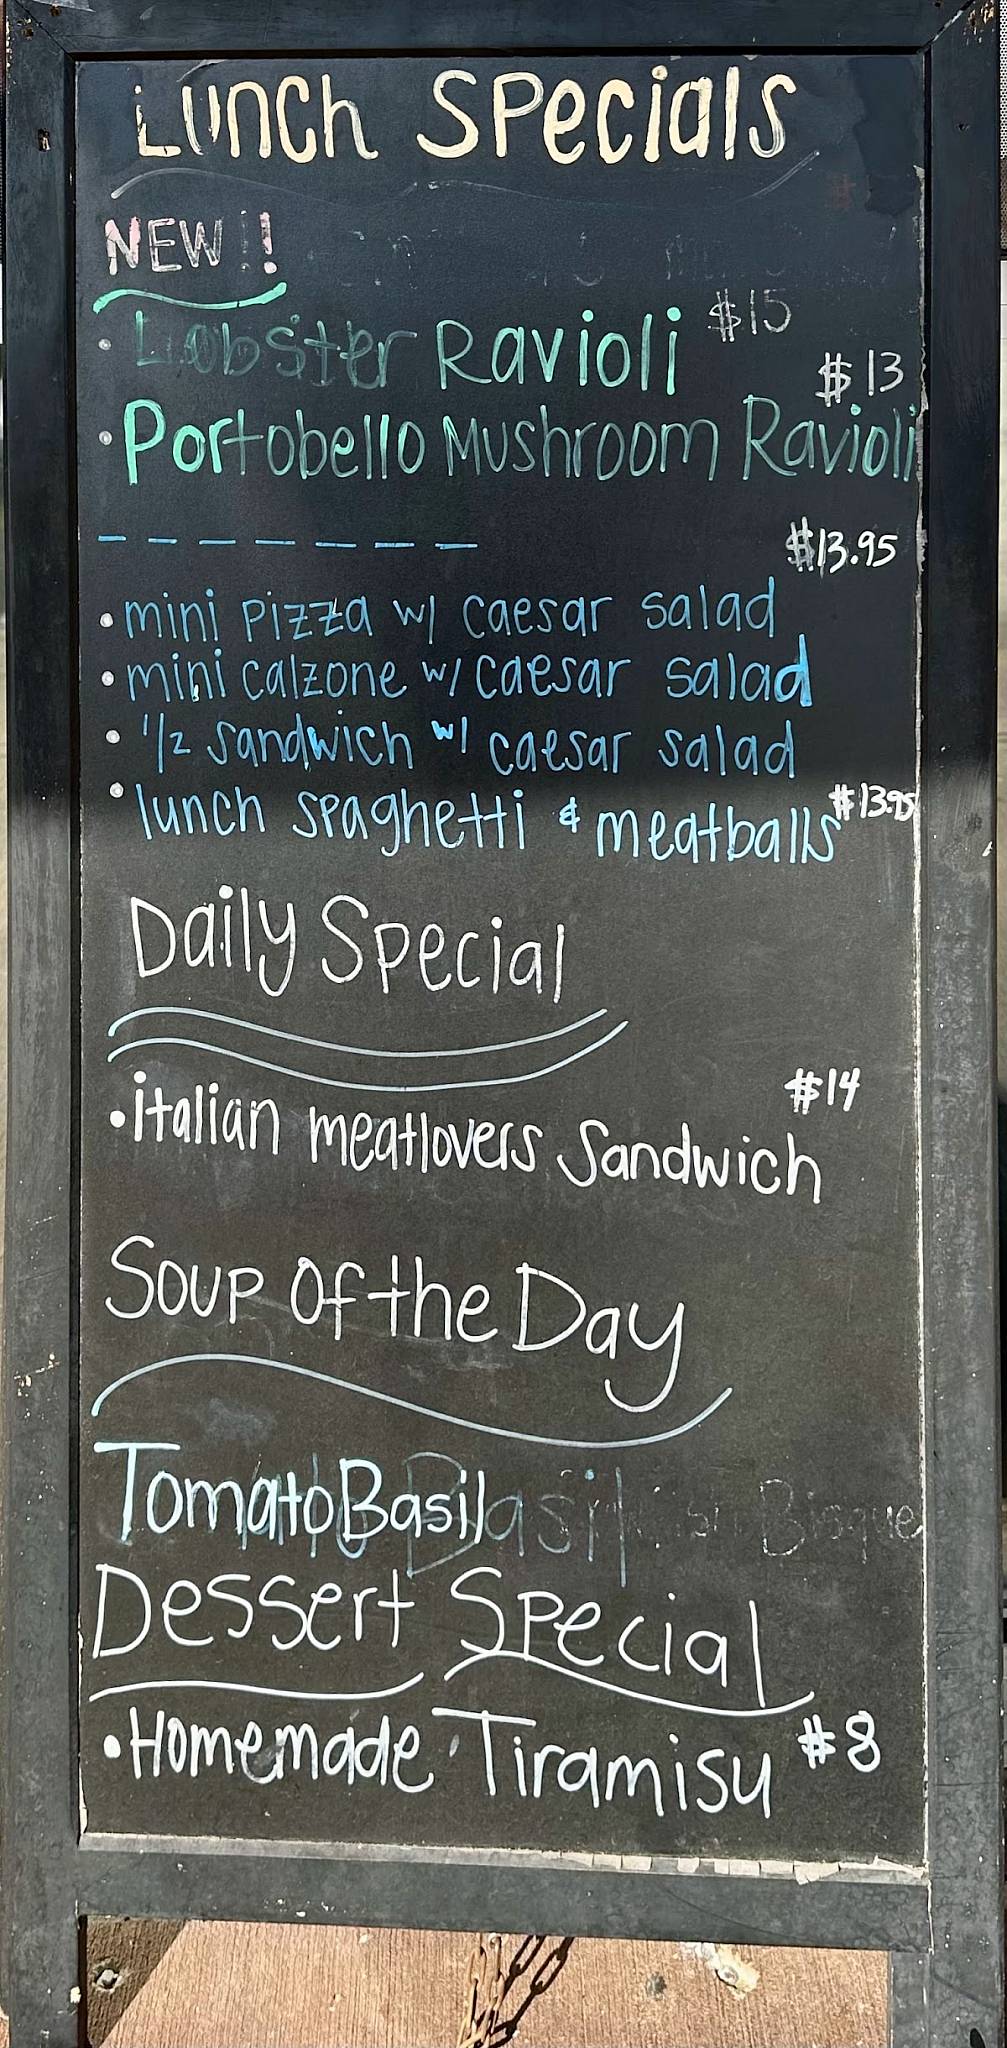 Lunch Specials
NEW!!
• Lobster Ravioli $15
$13
• Portobello Mushroom Ravioli
- - - - - - - -
$13.95
• mini pizza w/ caesar salad
• mini calzone w/ caesar salad
• 1/2 sandwich w/ caesar salad
• lunch spaghetti & meatballs $13.95
Daily Special
$14
• italian meatlovers Sandwich
Soup Of the Day
Tomato Basil Bisque
Dessert Special
• Homemade Tiramisu $8